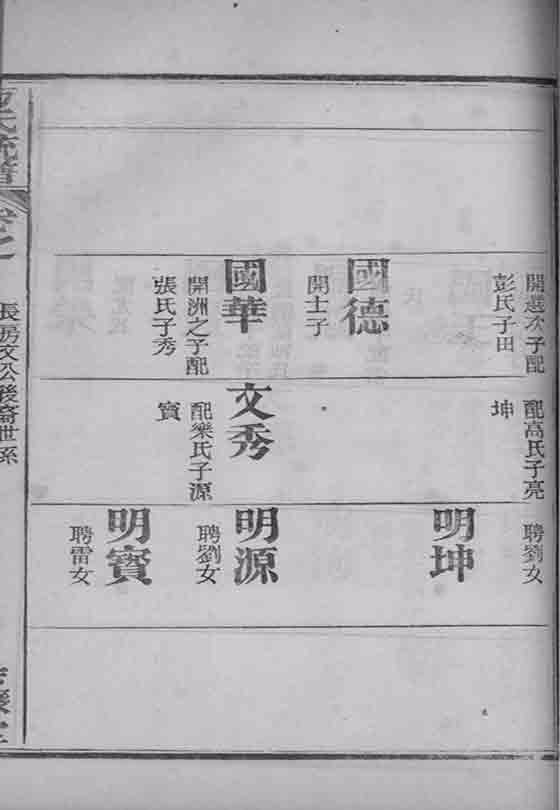 開選次子配
彭氏子田
國德
開士子
國華
開洲之子配
張氏子秀
配高氏子亮
坤
文秀
配樂氏子源
寳
聘劉女
明坤
明源
聘劉女
明寳
聘雷女
長房文公後裔世系